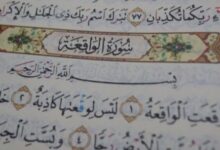 رَبِّكُمَا تُكَذِّبَانِ ٧٧ تَبَٰرَكَ ٱسْمُ رَبِّكَ ذِي ٱلْجَلَٰلِ وَٱلْإِكْرَامِ
سُورَةُ الْوَاقِعَةِ
بِسْمِ ٱللَّهِ ٱلرَّحْمَٰنِ ٱلرَّحِيمِ
وَقَعَتِ ٱلْوَاقِعَةُ ١ لَيْسَ لِوَقْعَتِهَا كَاذِبَةٌ ٢
ٱلْأَرْضُ رَجًّا ٤ وَبُسَّتِ ٱلْجِبَالُ